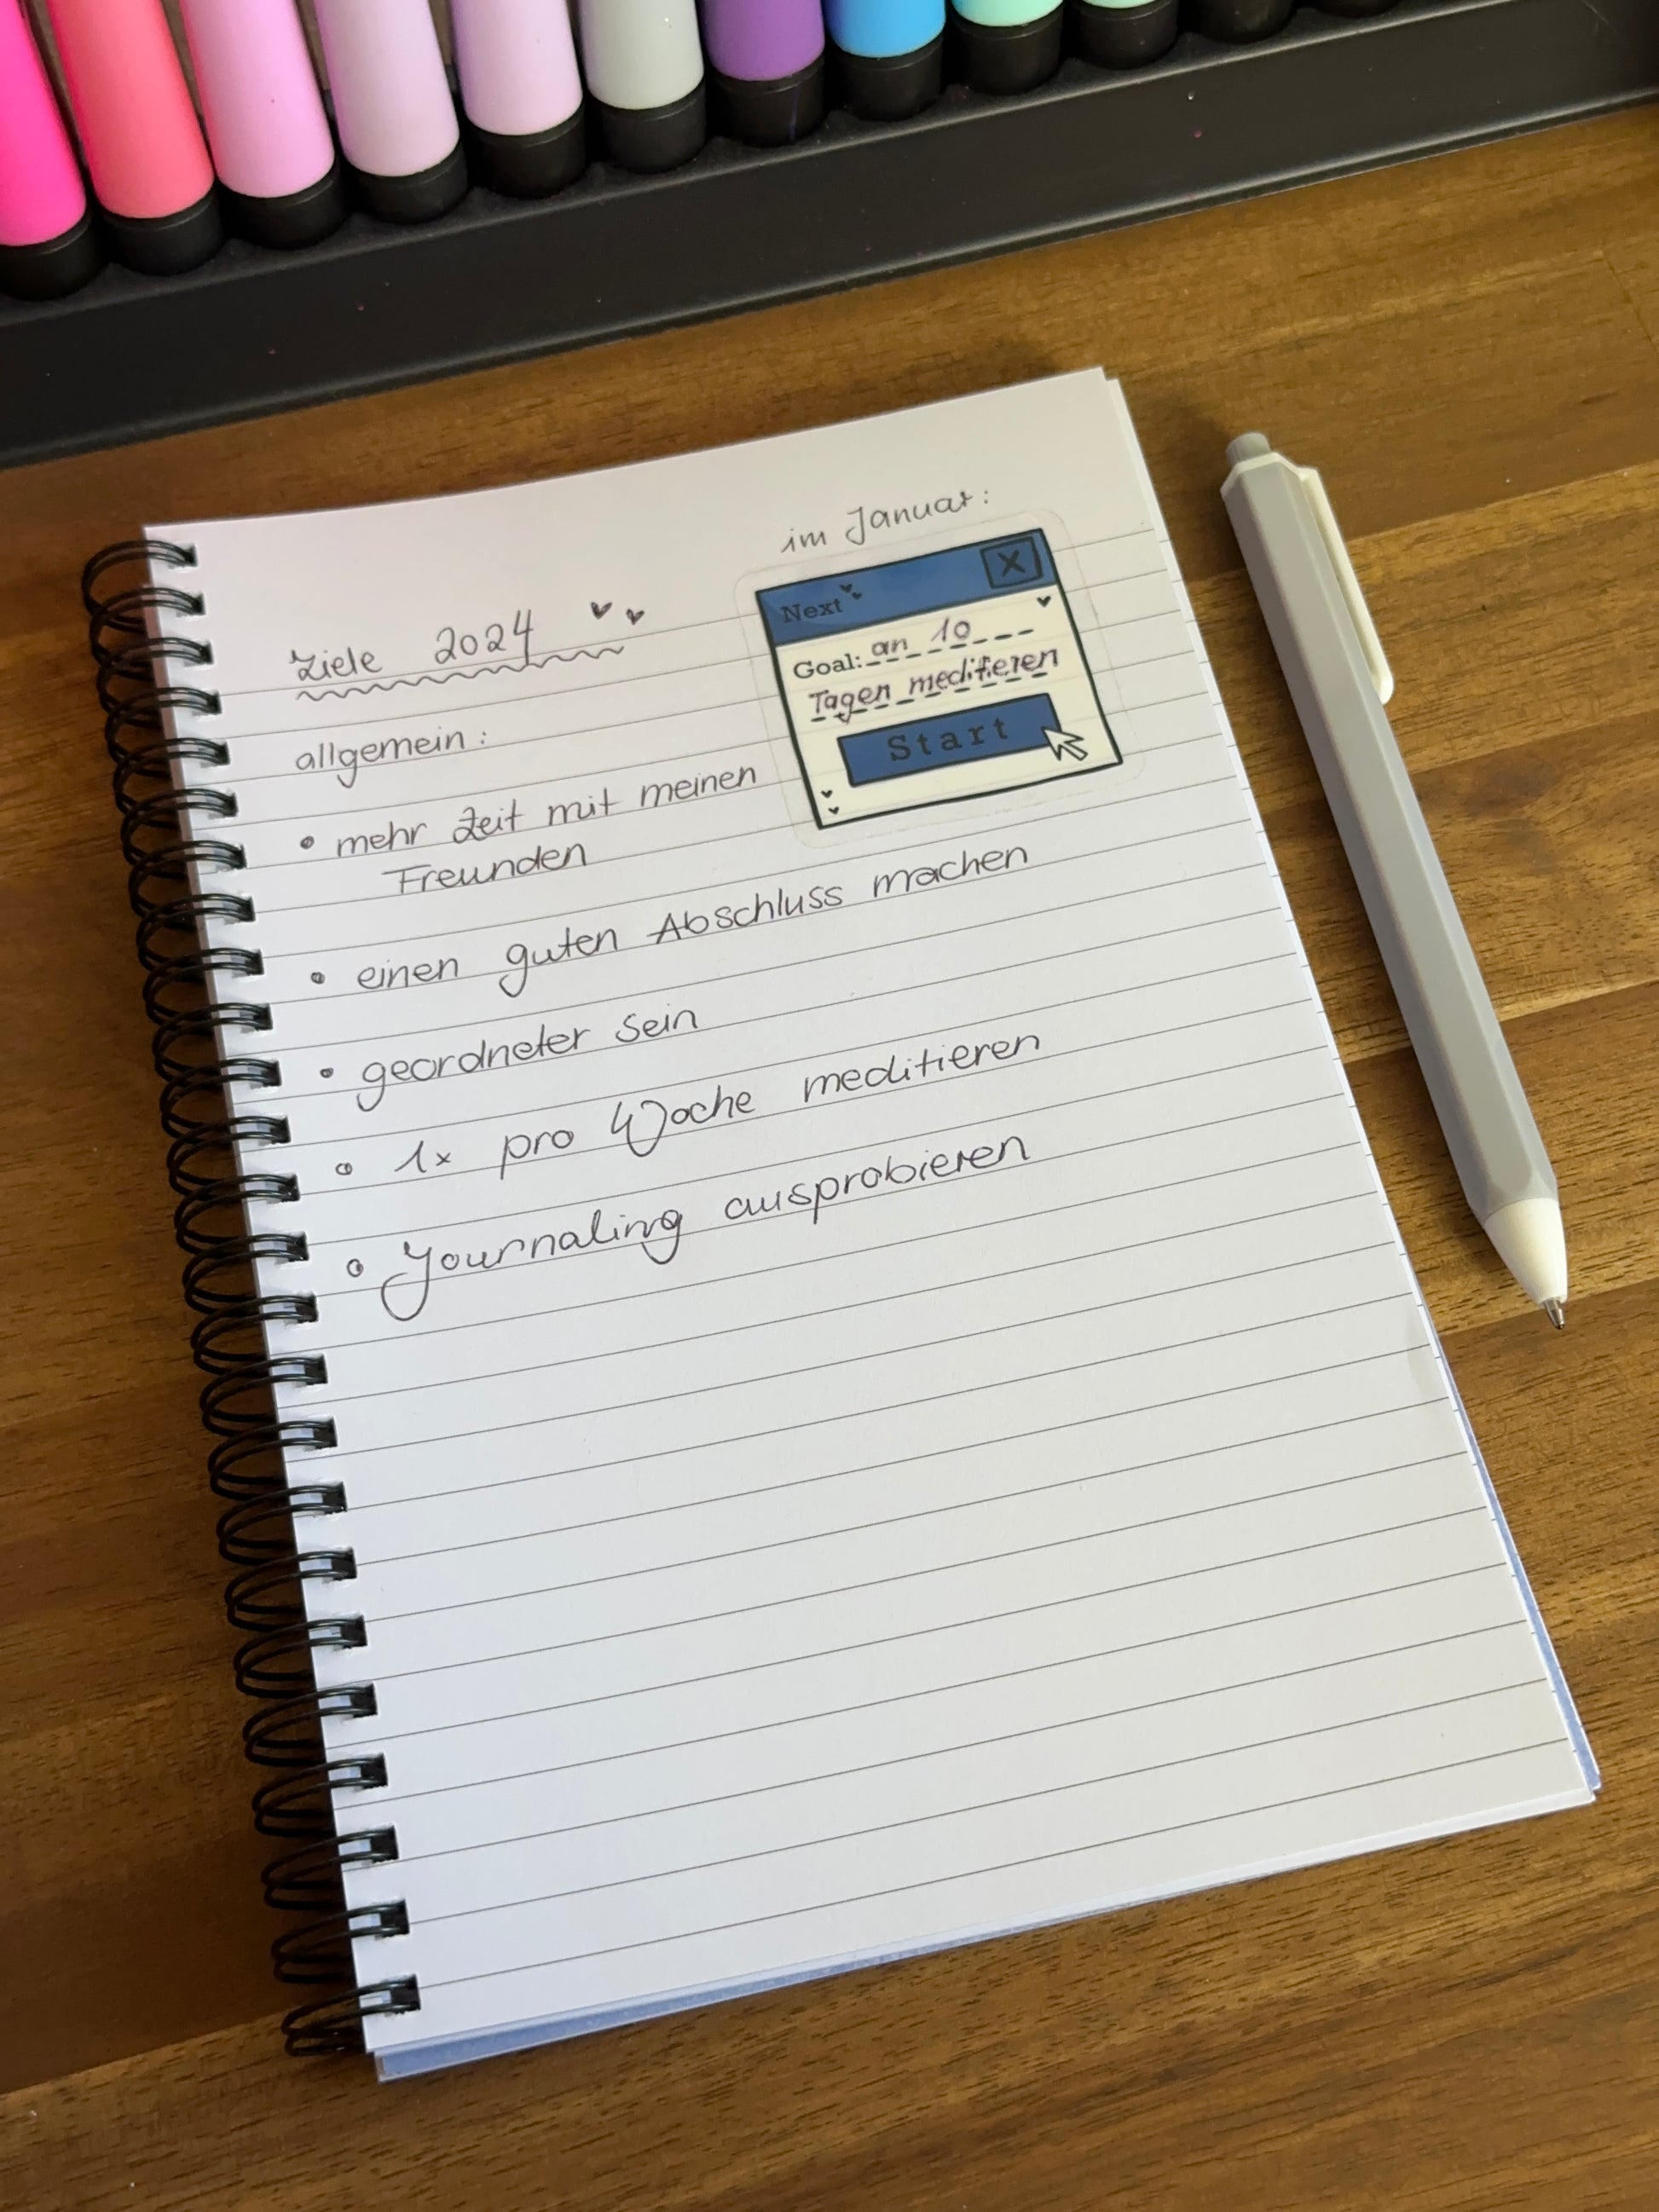 im Januar:
Next
Goal: an 10
Tagen meditieren
Start
Ziele 2024
allgemein:
• mehr Zeit mit meinen
Freunden
• einen guten Abschluss machen
• geordneter sein
• 1x pro Woche meditieren
• Journaling ausprobieren